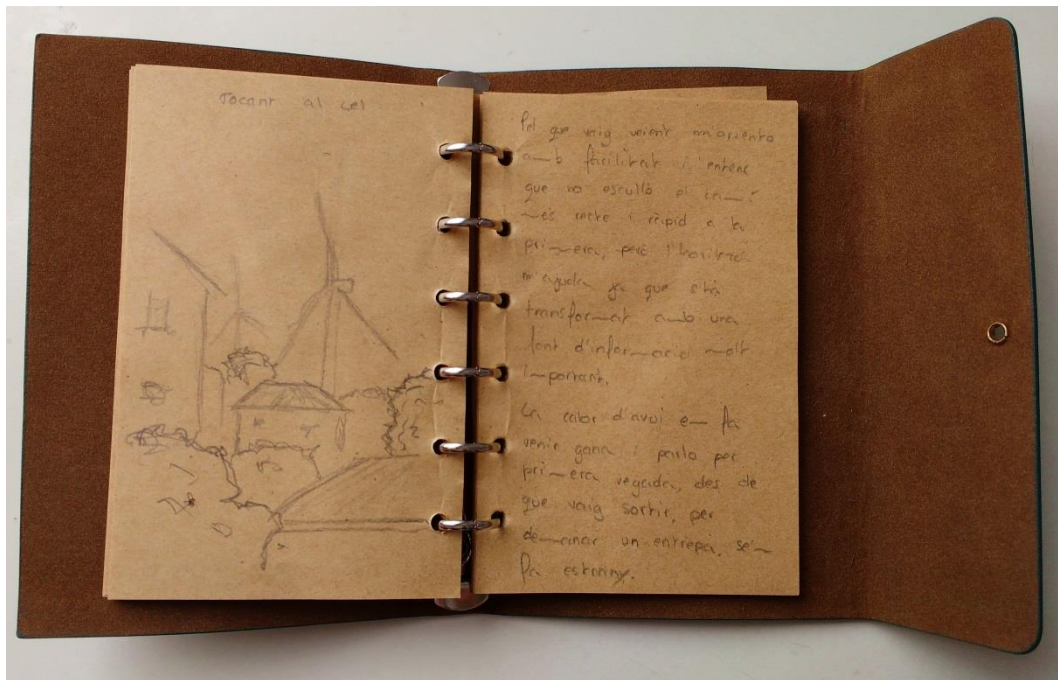 Tocant al cel
Pel que vaig veient m'oriento
amb facilitat i entenc
que no escullo el camí
més recte i ràpid a la
primera, però l'horitzó
m'ajuda ja que s'ha
transformat amb una
font d'informació molt
important.
La calor d'avui em fa
venir gana i parlo per
primera vegada, des de
que vaig sortir, per
demanar un entrepà. Se'm
fa estrany.